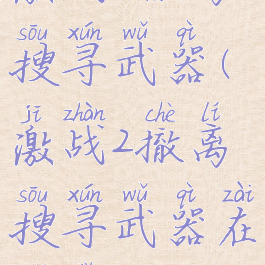 sōu xún wǔ qì
搜寻武器(
jī zhàn chè lí
激战2撤离
sōu xún wǔ qì zài
搜寻武器在